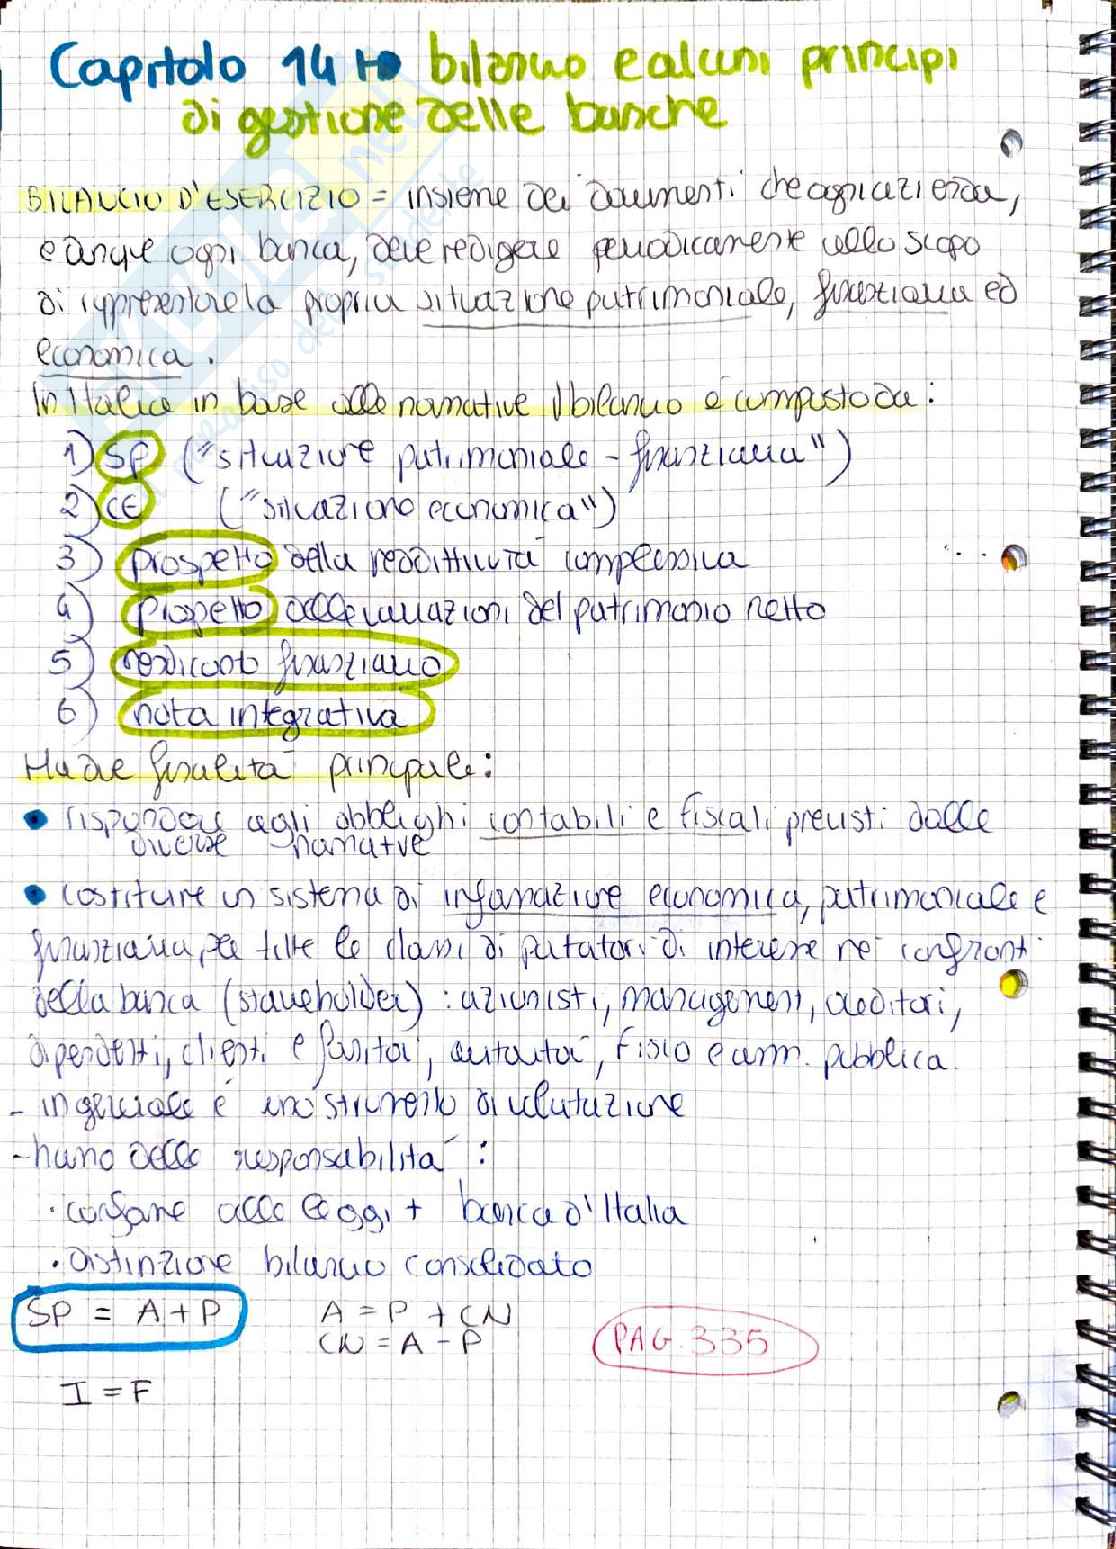 Capitolo 14 → bilancio e alcuni principi
di gestione delle banche
BILANCIO D'ESERCIZIO = insieme dei documenti che ogni azienda,
e dunque ogni banca, deve redigere periodicamente allo scopo
di rappresentare la propria situazione patrimoniale, finanziaria ed
economica.
In Italia in base alle normative il bilancio è composto da:
1) SP ("situazione patrimoniale - finanziaria")
2) CE ("situazione economica")
3) prospetto della redditività complessiva
4) prospetto delle variazioni del patrimonio netto
5) rendiconto finanziario
6) nota integrativa
Ha due finalità principali:
• rispondere agli obblighi contabili e fiscali previsti dalle
diverse normative
• costituire un sistema di informazione economica, patrimoniale e
finanziaria per tutte le classi di portatori di interesse nei confronti
della banca (stakeholder): azionisti, management, creditori,
dipendenti, clienti e fornitori, autorità, fisco e amm. pubblica.
- in generale è uno strumento di valutazione
- hanno delle responsabilità:
· conforme alle leggi + banca d'Italia
· distinzione bilancio consolidato
SP = A + P
A = P + CN
CN = A - P
PAG. 335
I = F